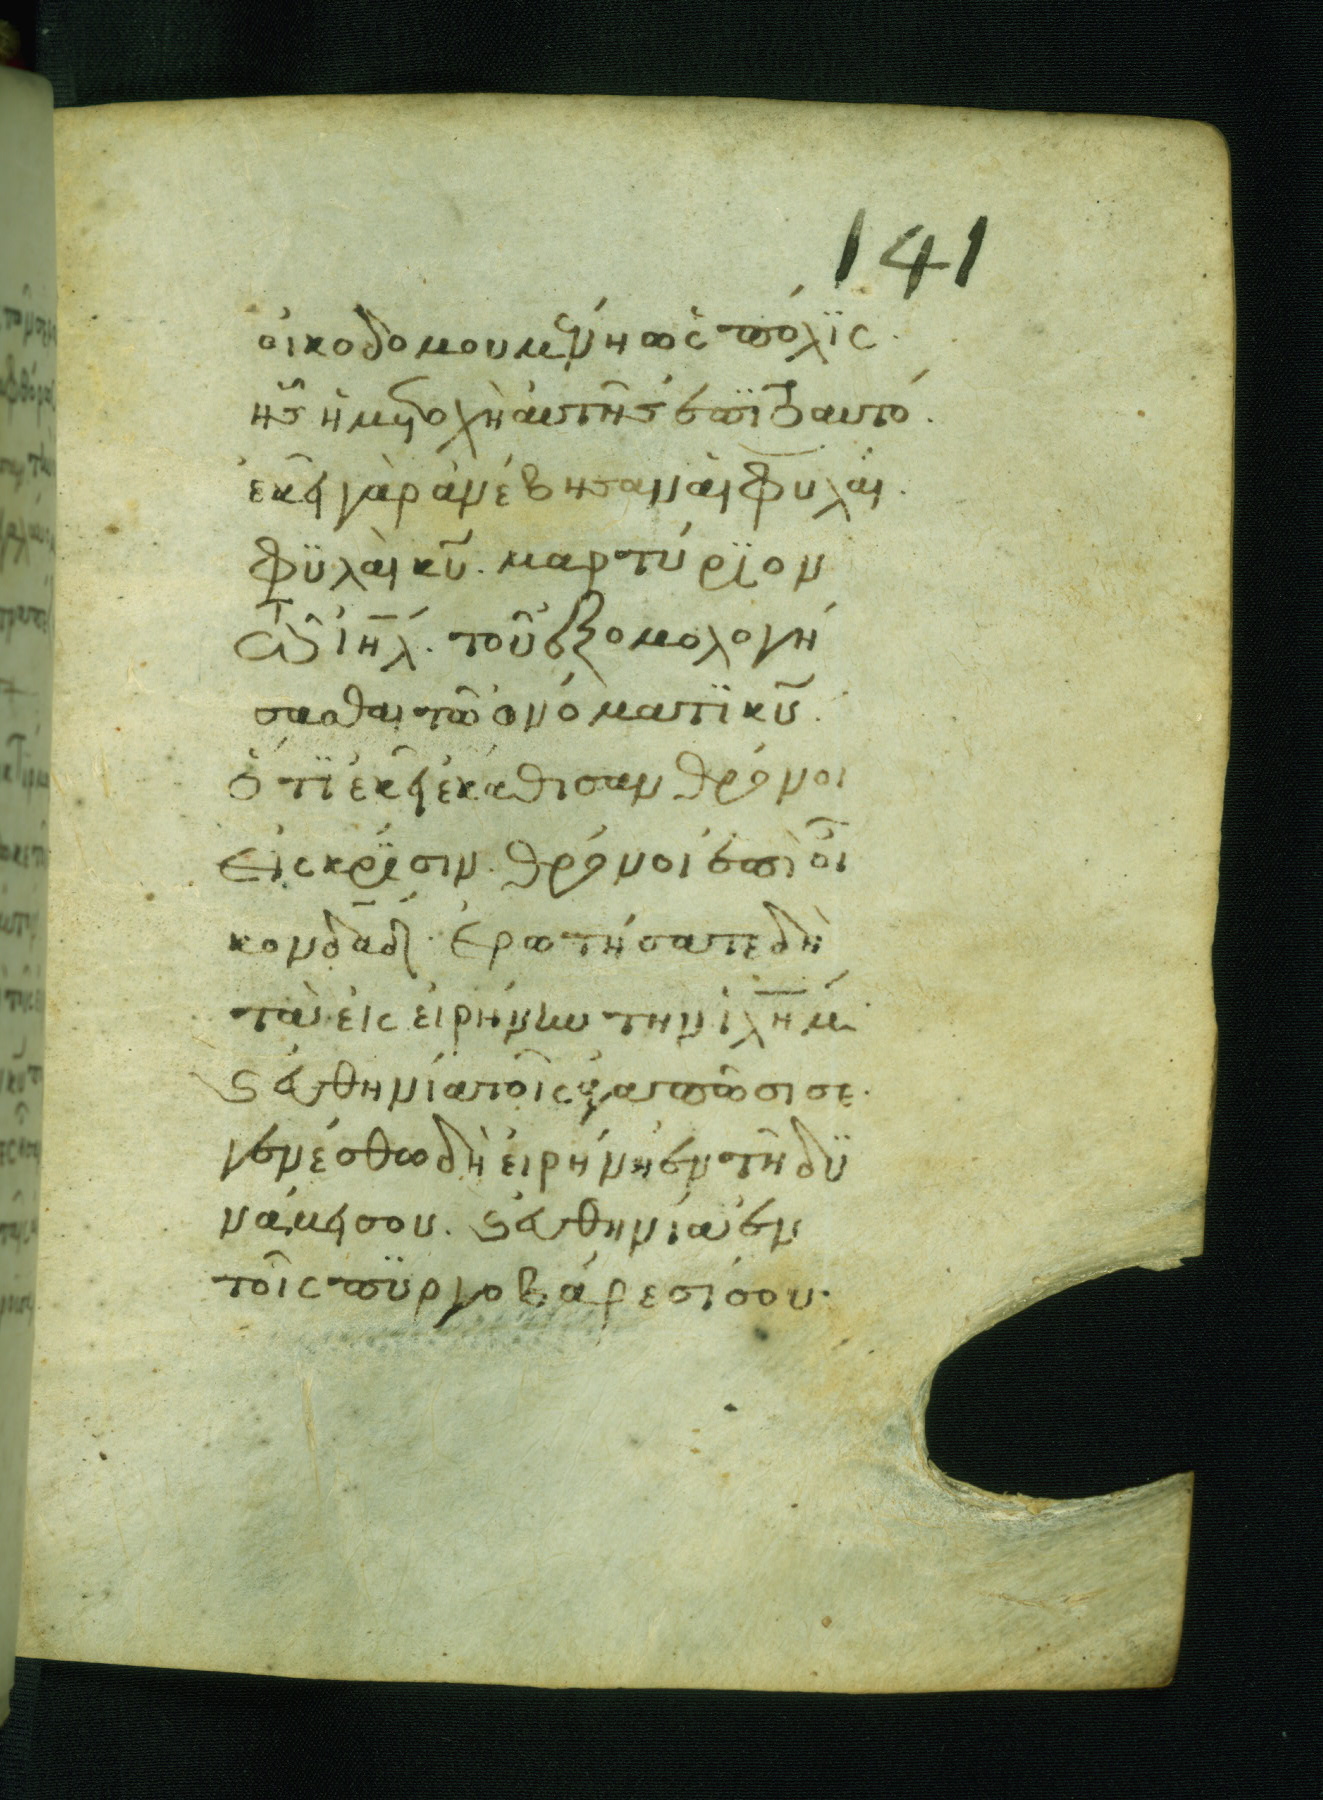 141
οἰκοδομουμένη ὡς πόλϊς.
ἧς ἡ μετοχὴ ἀυτῆς ἐπϊτοαυτό.
ἐκεῖ γὰρ ἀνέβησαν ἁι φυλὰι.
φϋλὰι κῦ. μαρτύρϊον
τῶ ιῆλ. τοῦ ἐξομολογή
σασθαι τῶ ὀνόματϊ κῦ.
ὅτϊ ἐκεῖ ἐκάθισαν θρόνοι
εἰς κρΐσιν. θρόνοι ἐπὶ οἶ
κον δᾱδ. ἐρωτήσατε δὴ
τὰ εἰς εἰρήνην τὴν ιλῆμ.
ϛ εὐθηνία τοῖς ἀγαπῶσι σε.
γενέσθω δὴ εἰρήνη ἐν τῆ δϋ
νάμει σου. ϛ εὐθηνία ἐν
τοῖς πϋργοβάρεσί σου.